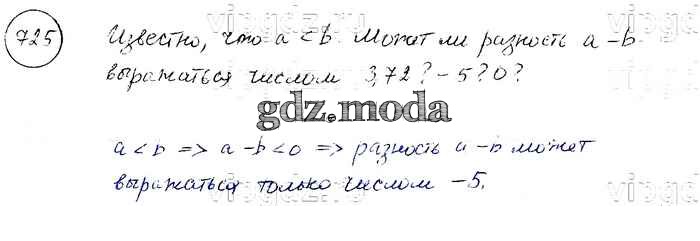 725 Известно, что a < b. Может ли разность a - b
выражаться числом 3,72? -5? 0?
gdz.moda
a < b => a - b < 0 => разность a - b может
выражаться только числом -5.